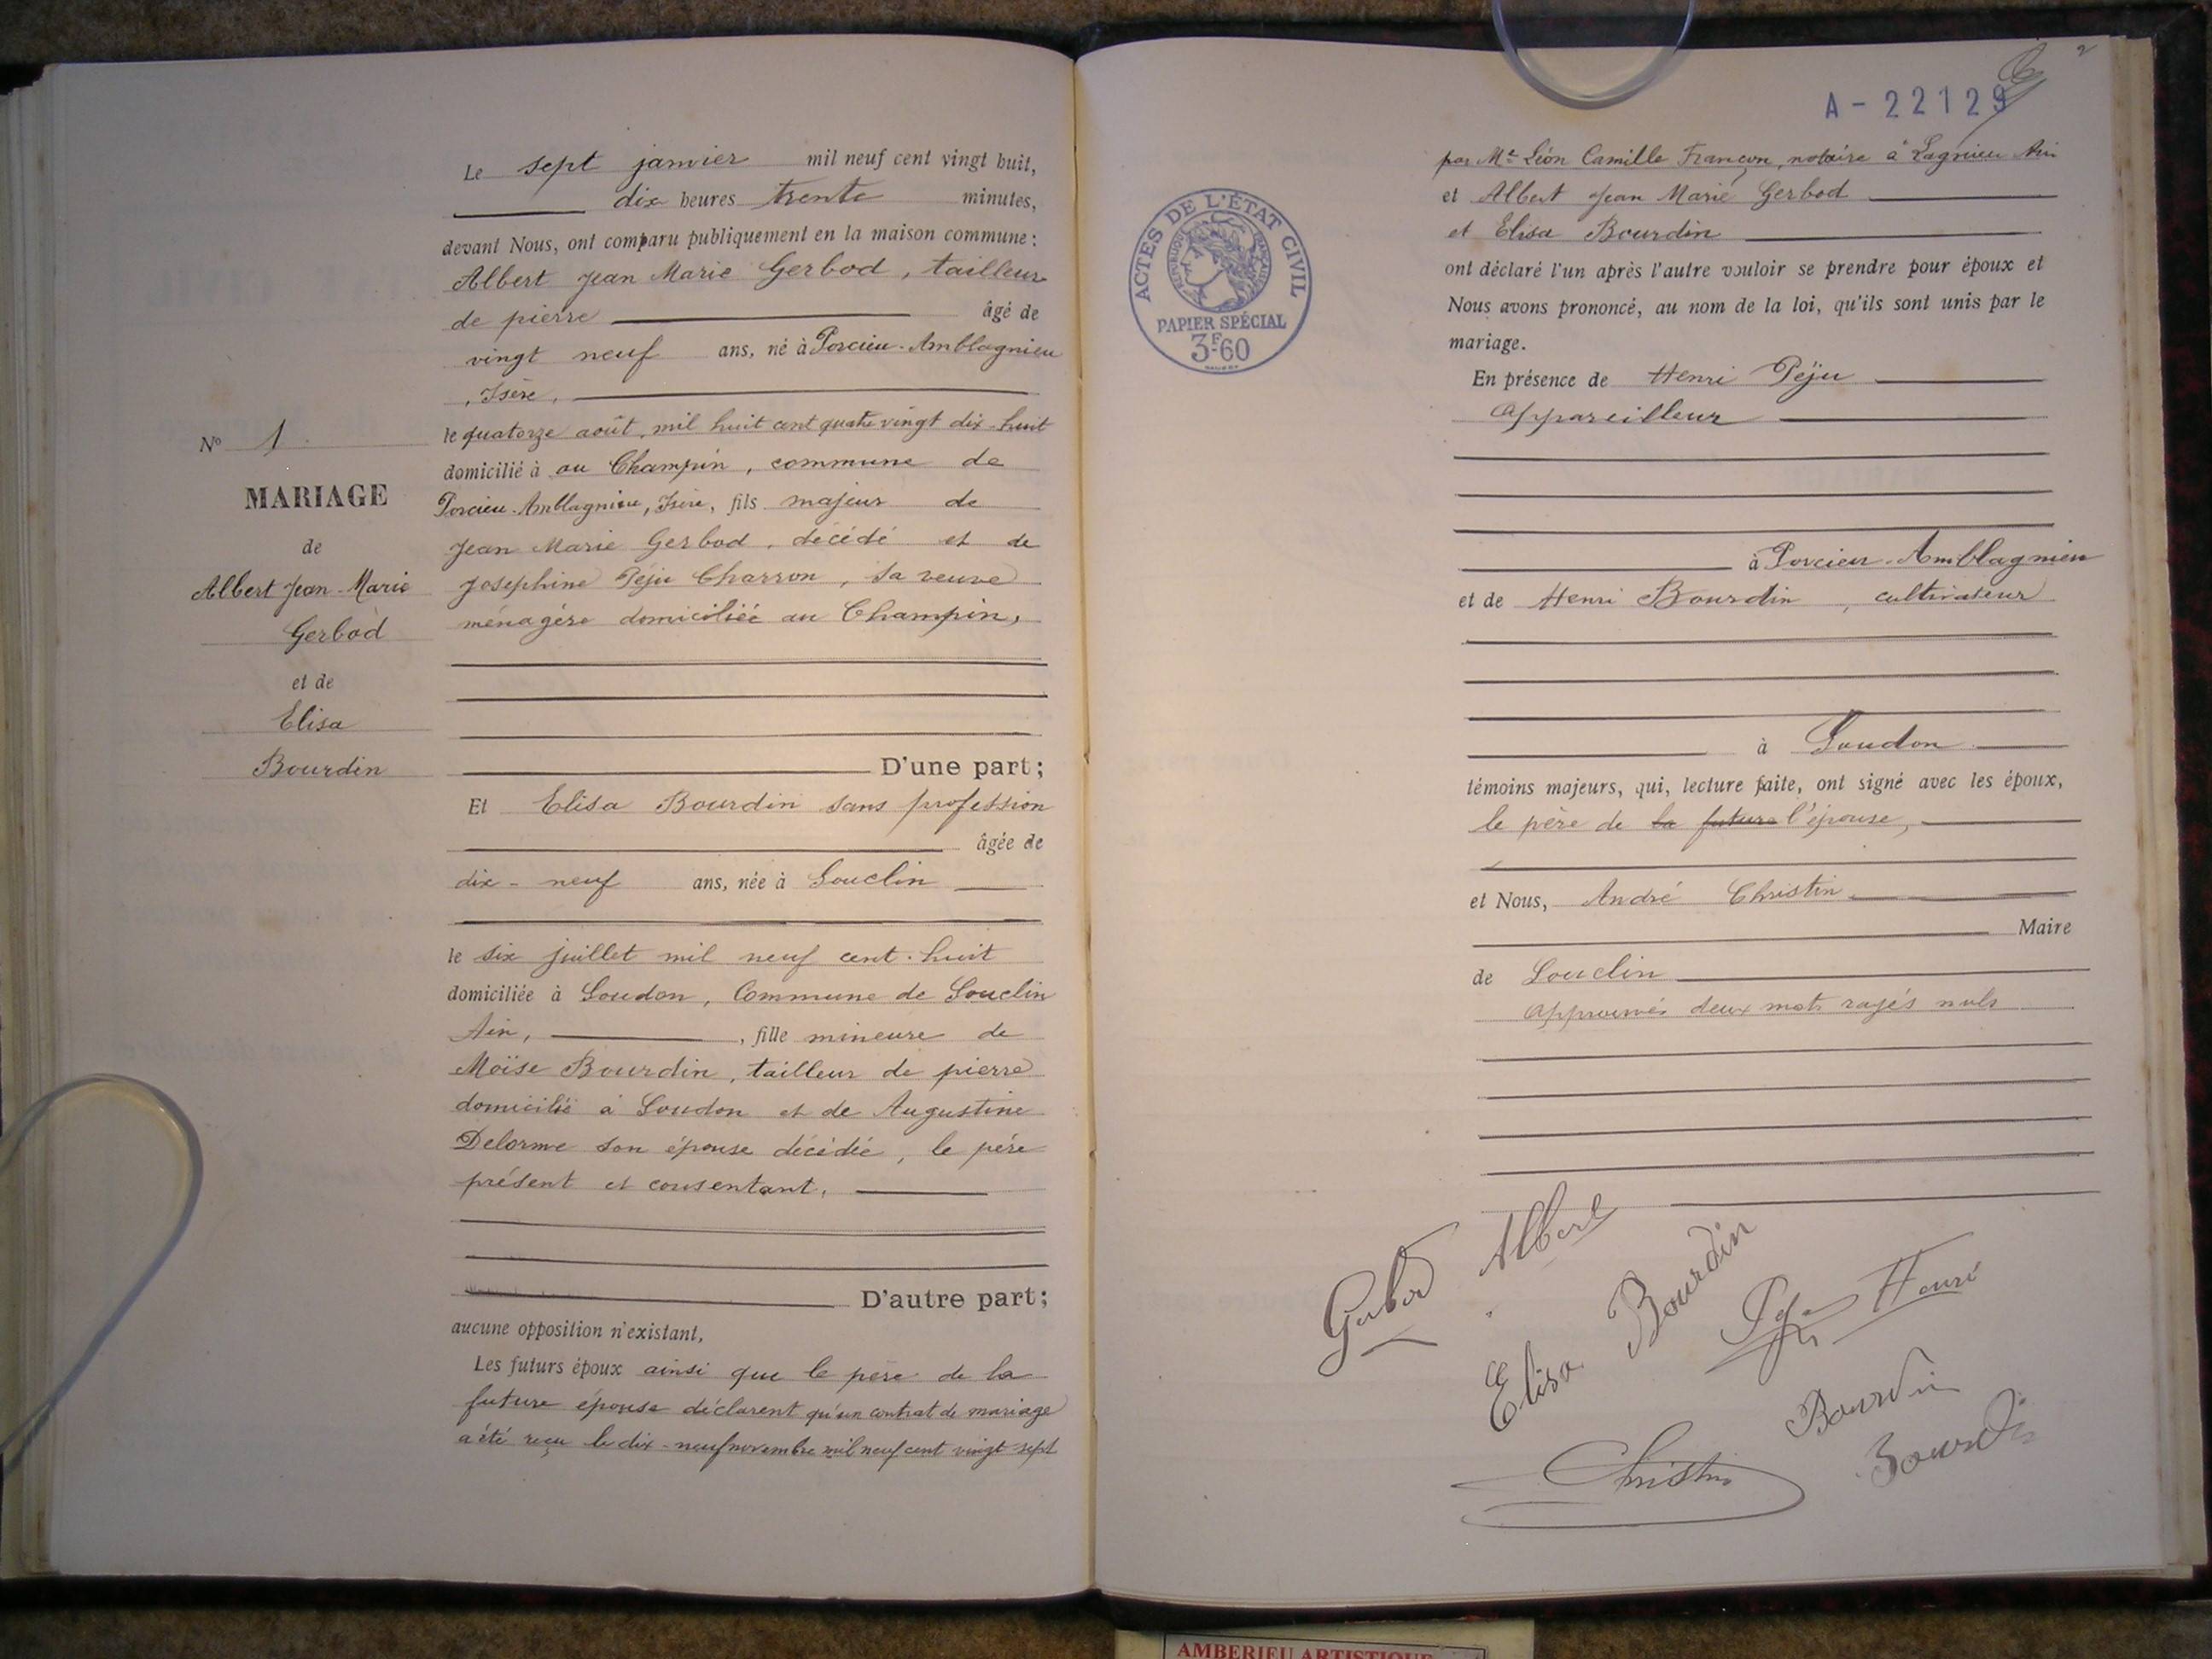 Le sept janvier mil neuf cent vingt huit,
dix heures trente minutes,
devant Nous, ont comparu publiquement en la maison commune :
Albert Jean Marie Gerbod, tailleur
de pierre âgé de
vingt neuf ans, né à Porcieu-Amblagnieu
, Isère,
le quatorze août, mil huit cent quatre vingt dix-huit
domicilié à au Champin, commune de
Porcieu-Amblagnieu, Isère, fils majeur de
Jean Marie Gerbod, décédé et de
Josephine Péju Charron, sa veuve
ménagère domiciliée au Champin,
D'une part ;
Et Elisa Bourdin sans profession
âgée de
dix-neuf ans, née à Souclin
le six juillet mil neuf cent-huit
domiciliée à Soudon, Commune de Souclin
Ain, , fille mineure de
Moïse Bourdin, tailleur de pierre
domicilié à Soudon et de Augustine
Delorme son épouse décédée, le père
présent et consentant,
D'autre part ;
aucune opposition n'existant,
Les futurs époux ainsi que le père de la
future épouse déclarent qu'un contrat de mariage
a été reçu le dix-neuf novembre mil neuf cent vingt-sept
N° 1
MARIAGE
de
Albert Jean-Marie
Gerbod
et de
Elisa
Bourdin
2
A-22129
ACTES DE L'ÉTAT CIVIL
RÉPUBLIQUE FRANÇAISE
PAPIER SPÉCIAL
3F60
par Me Léon Camille Françon, notaire à Lagnieu Ain
et Albert Jean Marie Gerbod
et Elisa Bourdin
ont déclaré l'un après l'autre vouloir se prendre pour époux et
Nous avons prononcé, au nom de la loi, qu'ils sont unis par le
mariage.
En présence de Henri Péju
appareilleur
à Porcieu-Amblagnieu
et de Henri Bourdin, cultivateur
à Soudon
témoins majeurs, qui, lecture faite, ont signé avec les époux,
le père de la future l'épouse,
et Nous, André Christin
Maire
de Souclin
approuvés deux mots rayés nuls
Gerbod Albert
Elisa Bourdin
Péju Henri
Bourdin
Christin
Bourdin
AMBERIEU ARTISTIQUE